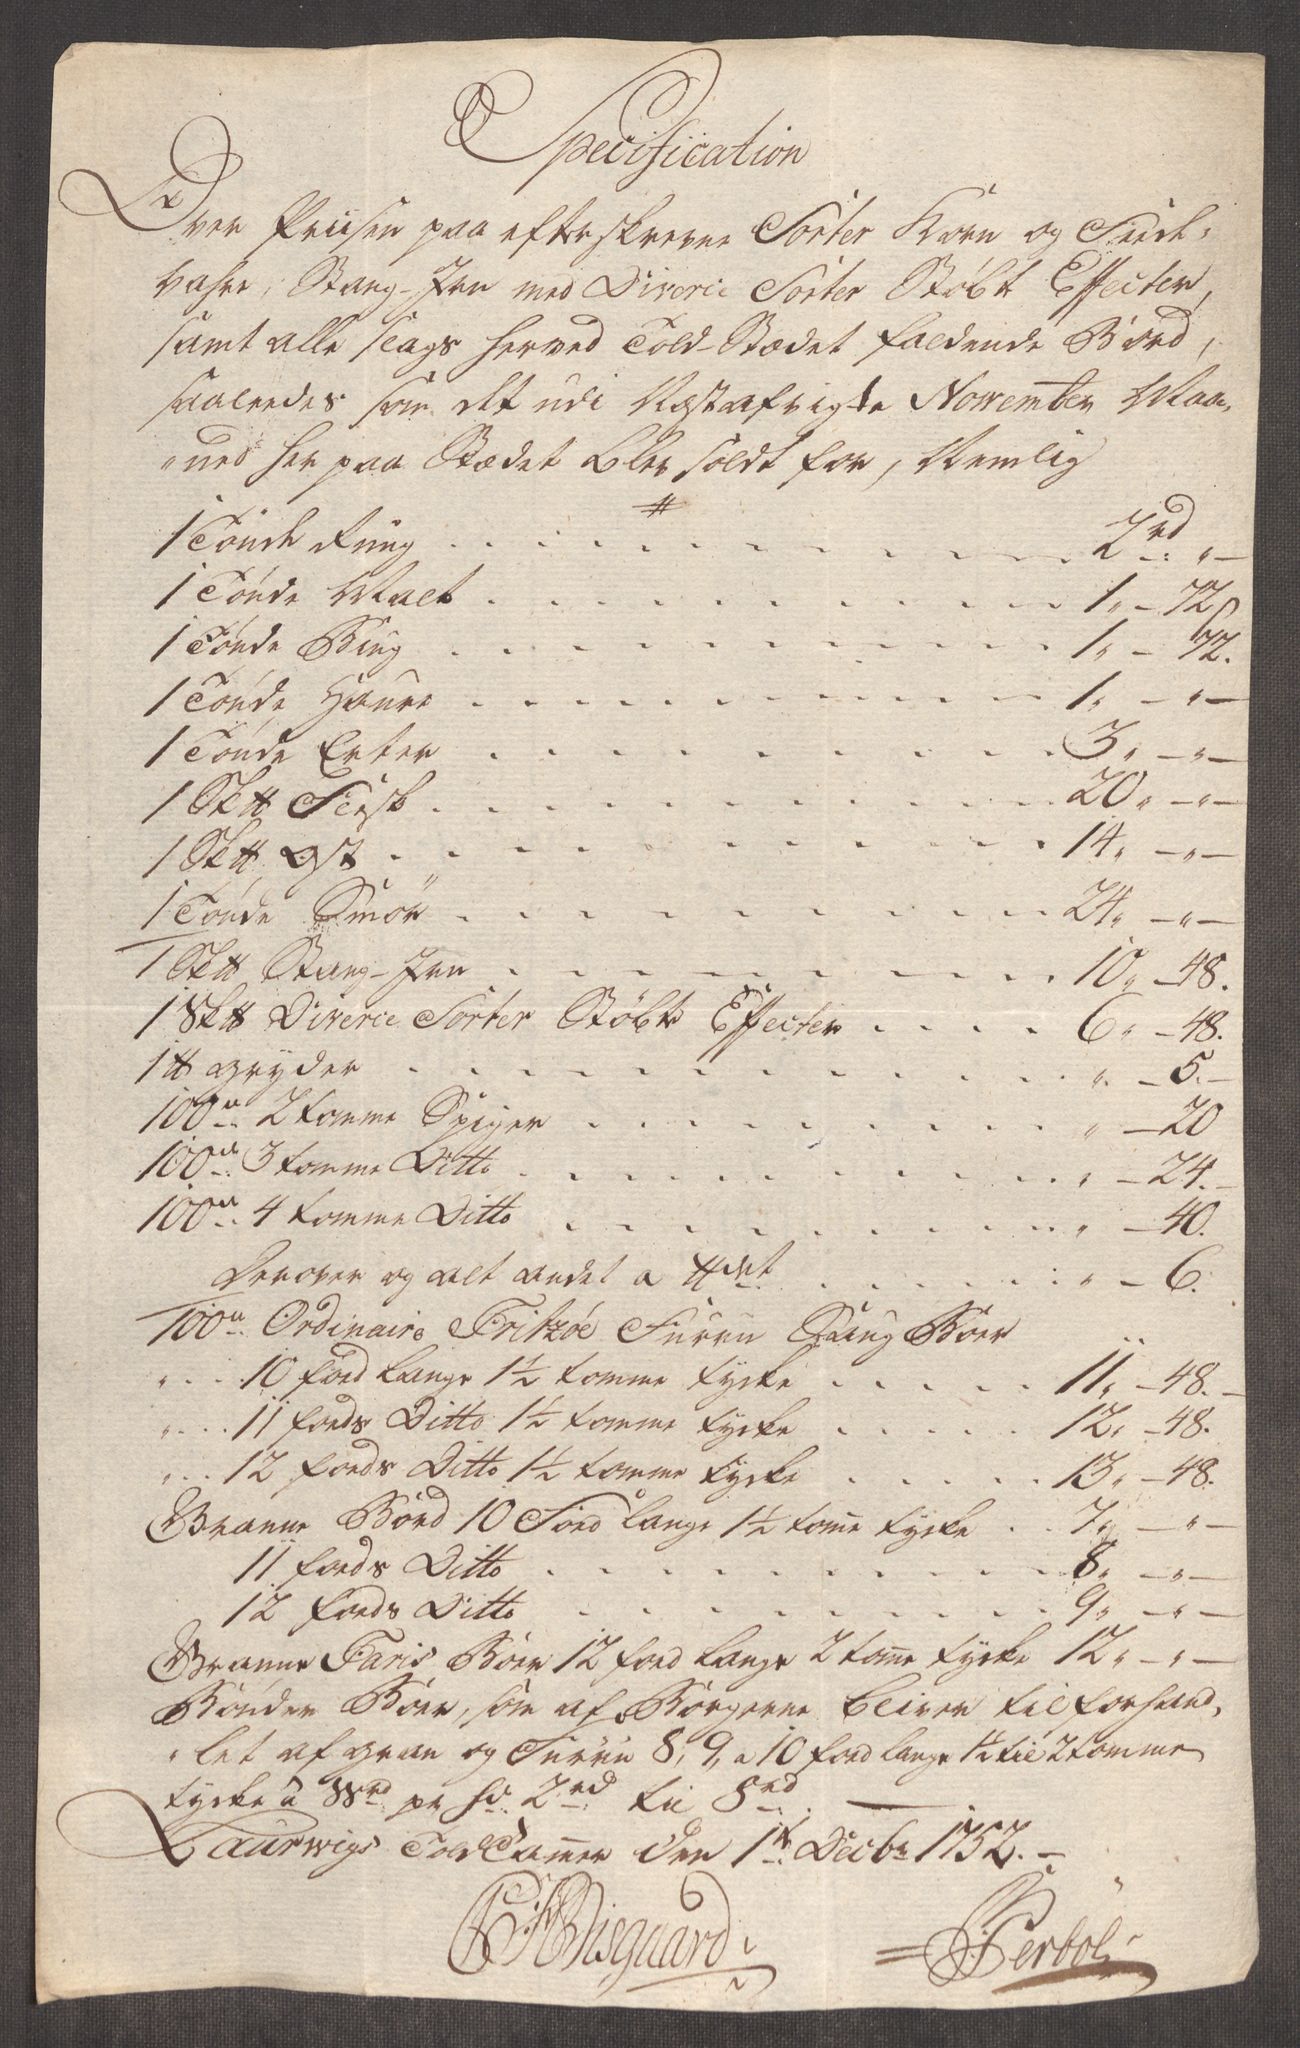 Specification
Over Priisen paa efterskrevne Sorter Korn og Fede-
vahre, Stang-Jern med Diverse Sorter Støbt Effecter,
samt alle slags herved Told-Stædet faldende Bord,
saaleedes som det udi Næstafvigte November Maa-
ned her paa Stædet blev soldt for, Nemlig
1 Tønde Rug 2rd "
1 Tønde Malt 1 " 72 s
1 Tønde Biug 1 " 72.
1 Tønde Haure 1 " "
1 Tønde Erter 3 " "
1 Sk℔ Flesk 20 " "
1 Sk℔ Ost 14 " "
1 Tønde Smør 24 " "
1 Sk℔ Stang-Jern 10 " 48.
1 Sk℔ Diverse Sorter Støbte Effecter 6 " 48.
1 ℔ gryder " 5.
100de 2 tomme Spiger " 20
100de 3 tomme Ditto " 24.
100de 4 tomme Ditto " 40.
Derover og alt andet a ℔det " 6.
100de Ordinaire Fritzøe Furru Saug Boer
" 10 fod lange 1½ tomme tycke 11 " 48.
" 11 fods Ditto 1½ tomme tycke 12 " 48.
" 12 fods Ditto 1½ tomme tycke 13 " 48.
Granne Bord 10 Fod lange 1½ tome tycke 7 " "
11 fods Ditto 8 " "
12 fods Ditto 9 " "
Granne Faris Boer 12 fod lange 2 tome tycke 12 " "
Bønder Boer, som af Borgerne bliver tilforhand-
let af gran og Furru 8, 9, a 10 fod lange 1¼ til 2 tomme
tycke a pr 2rd til 8rd
Laurwigs Told Camer den 1t Decbr 1752.
Wisgaard